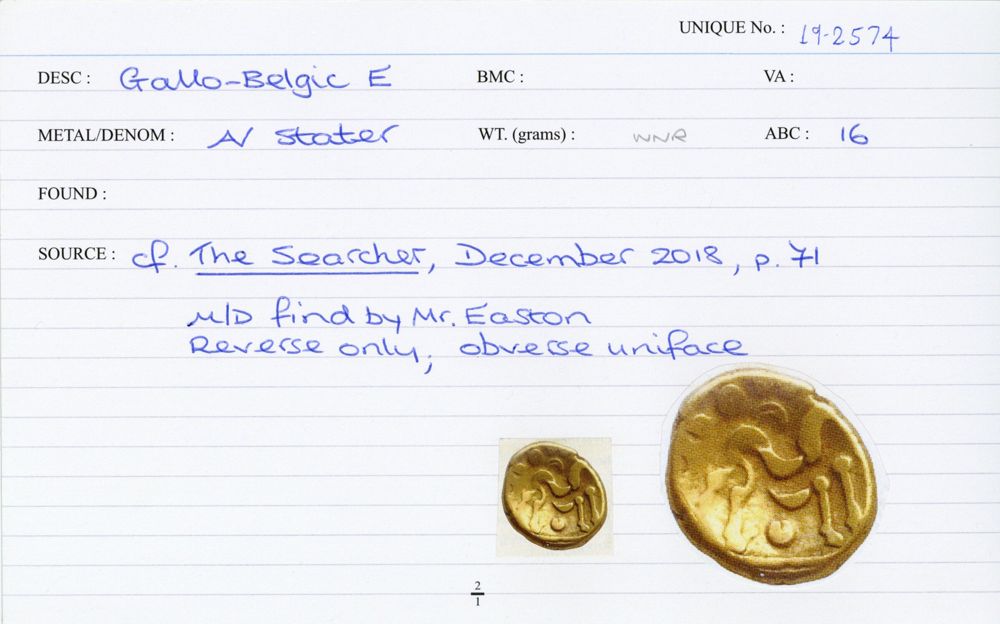 UNIQUE No. : 19-2574
DESC : Gallo-Belgic E BMC : VA :
METAL/DENOM : AV Stater WT. (grams) : WNR ABC : 16
FOUND :
SOURCE : cf. The Searcher, December 2018, p. 71
M/D find by Mr. Easton
Reverse only; obverse uniface
2
1